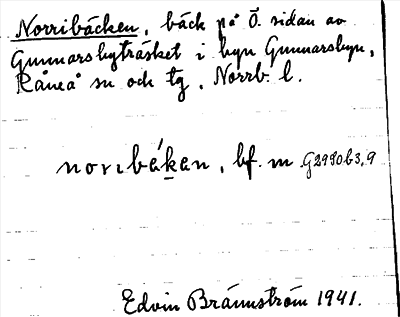 Norribäcken, bäck på Ö. sidan av
Gunnarsbyträsket i byn Gunnarsbyn,
Råneå sn och tg, Norrb. l.
norıbék̲en, bf. m G2930b3,9
Edvin Brännström 1941.